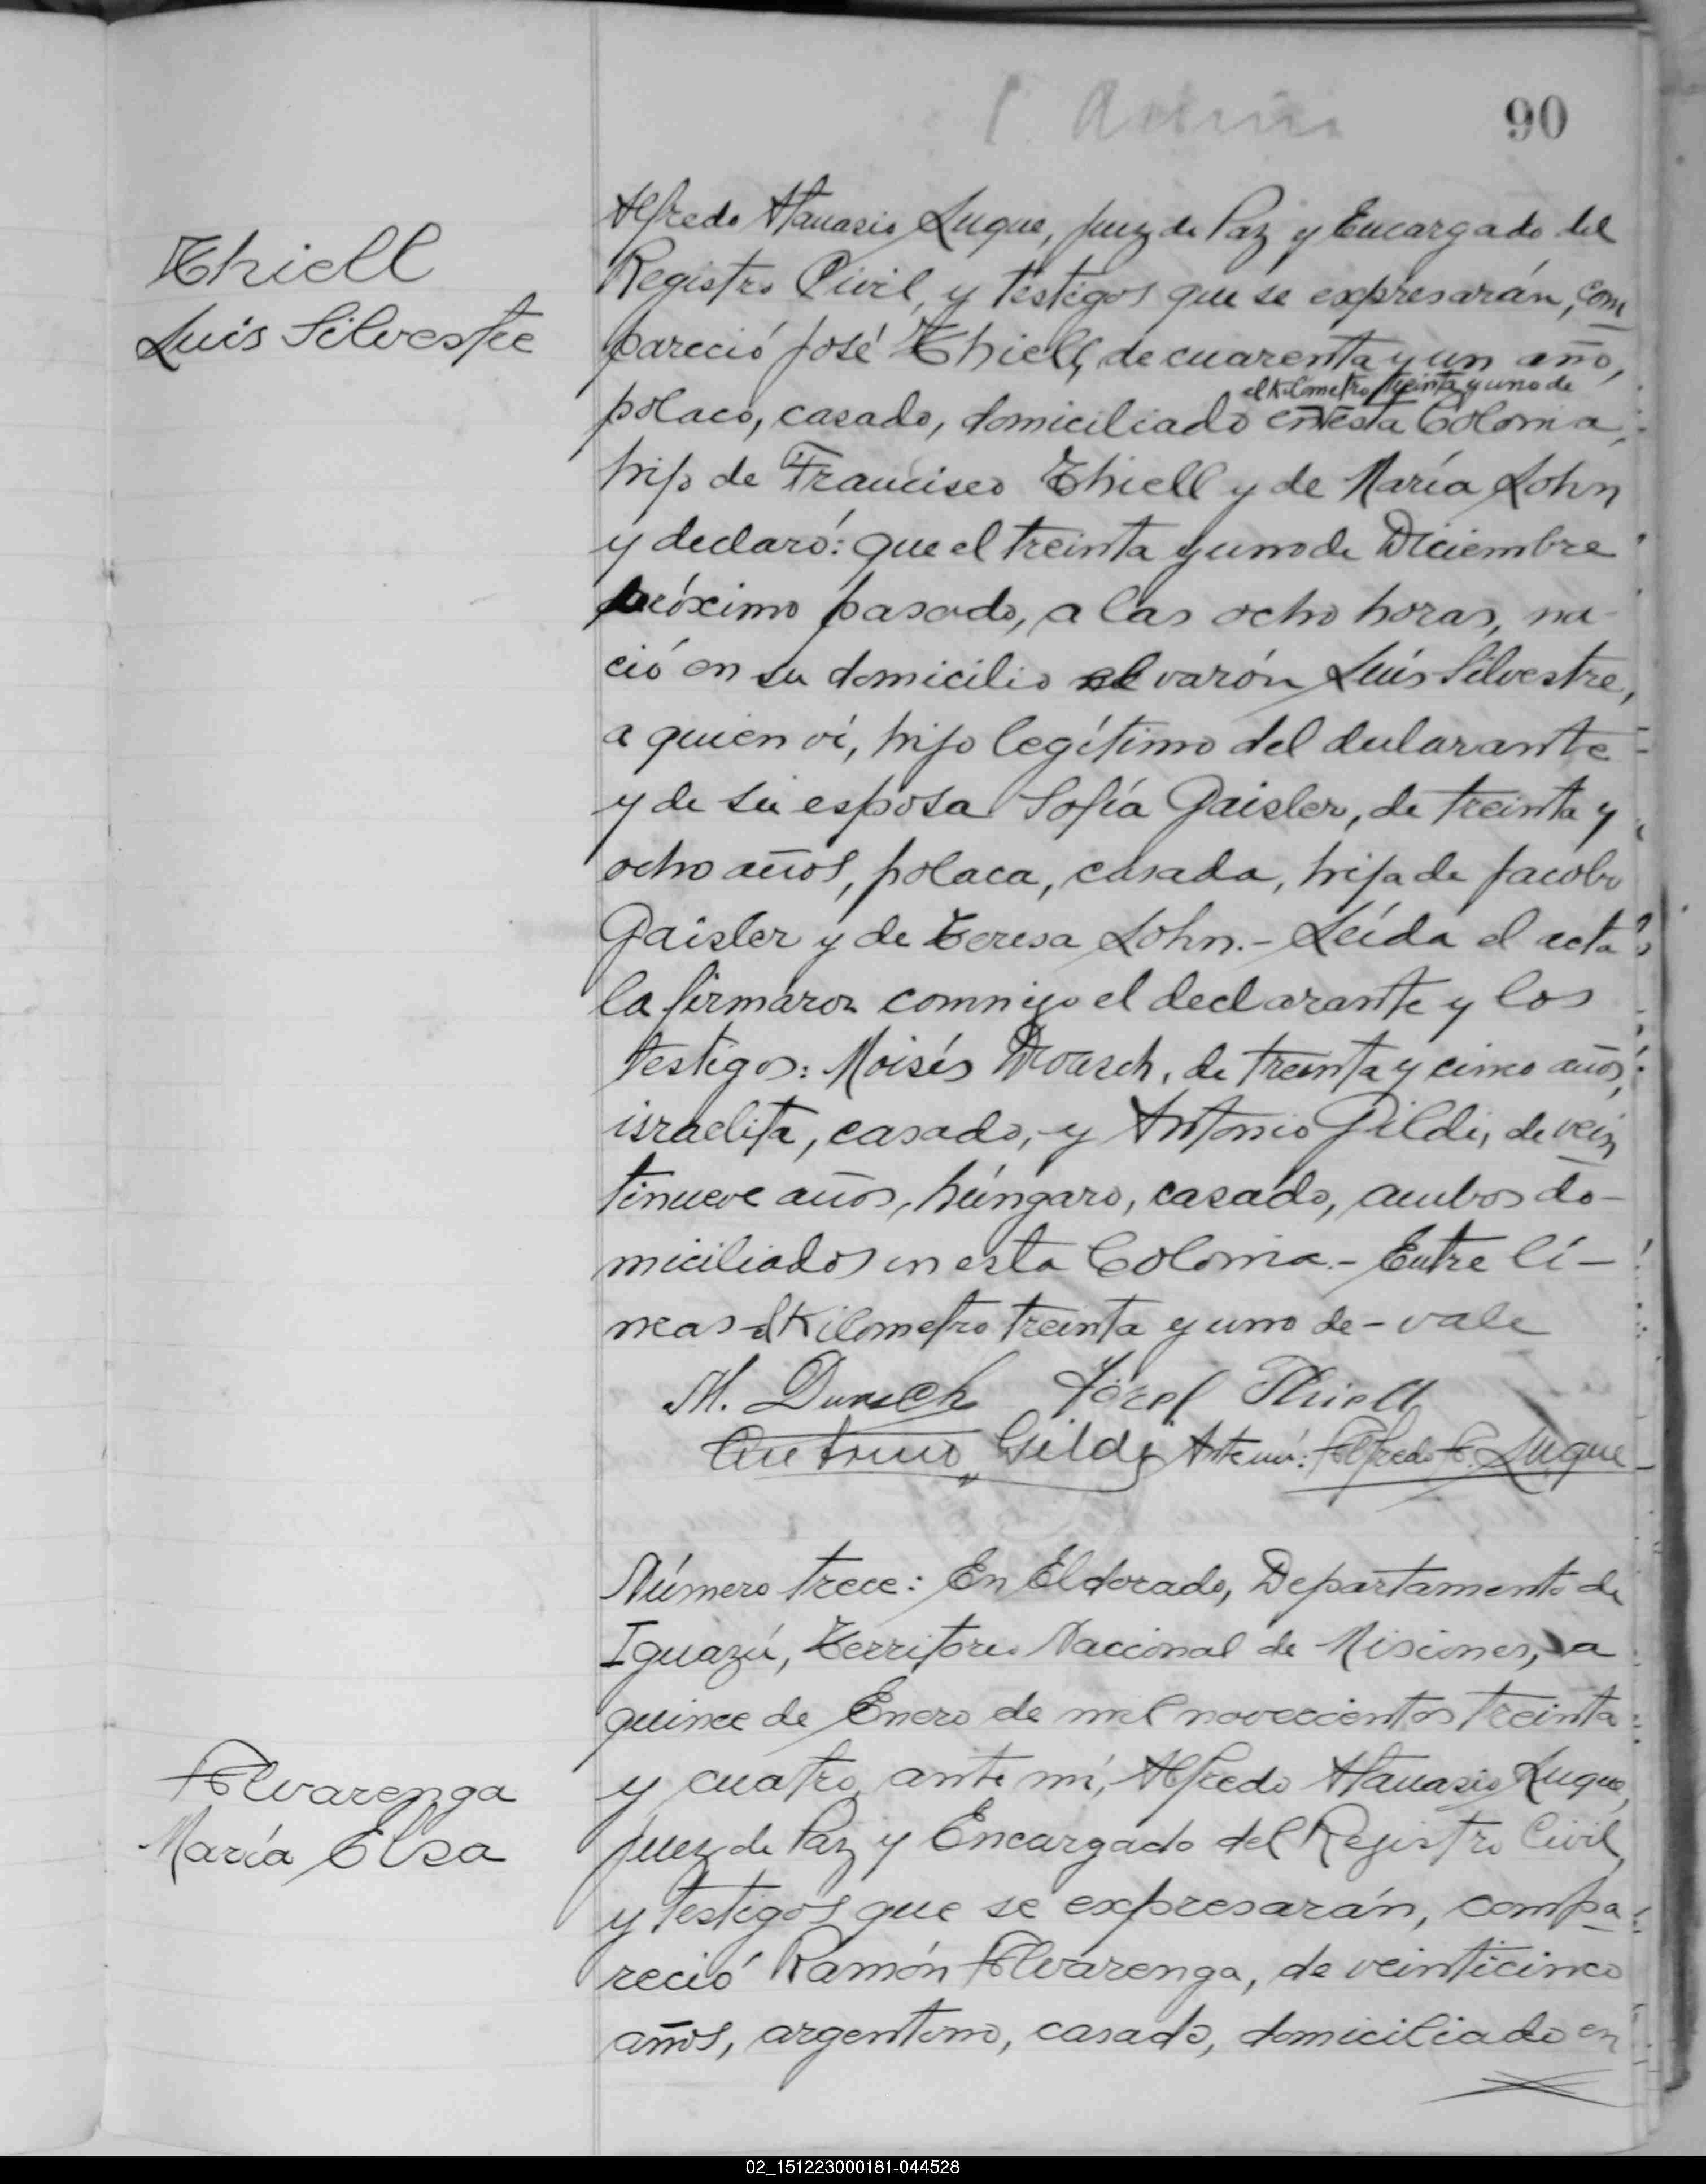 90
Thiell
Luis Silvestre
Alfredo Atanasio Luque, Juez de Paz y Encargado del
Registro Civil, y testigos que se expresarán, com
pareció José Thiell, de cuarenta y un año,
el Kilometro treinta y uno de
polaco, casado, domiciliado en esta Colonia,
hijo de Francisco Thiell y de María Lohn
y declaró: que el treinta y uno de Diciembre
próximo pasado, a las ocho horas, na-
ció en su domicilio el varón Luis Silvestre,
a quien ví, hijo legítimo del declarante
y de su esposa Sofía Gaisler, de treinta y
ocho años, polaca, casada, hija de Jacobo
Gaisler y de Teresa Lohn.- Leída el acta
la firmaron conmigo el declarante y los
testigos: Moisés, de treinta y cinco años,
israelita, casado, y Antonio Gildi, de vein
tinueve años, húngaro, casado, ambos do-
miciliados en esta Colonia.- Entre lí-
neas-el Kilometro treinta y uno de-vale
M. Jozef Thiell
Gildi Ante mí: Alfredo A. Luque
Número trece: En Eldorado, Departamento de
Iguazú, Territorio Nacional de Misiones, a
quince de Enero de mil novecientos treinta
y cuatro, ante mí, Alfredo Atanasio Luque,
Juez de Paz y Encargado del Registro Civil,
Alvarenga
María Elsa
y testigos que se expresarán, compa
reció Ramón Alvarenga, de veinticinco
años, argentino, casado, domiciliado en
02_151223000181-044528